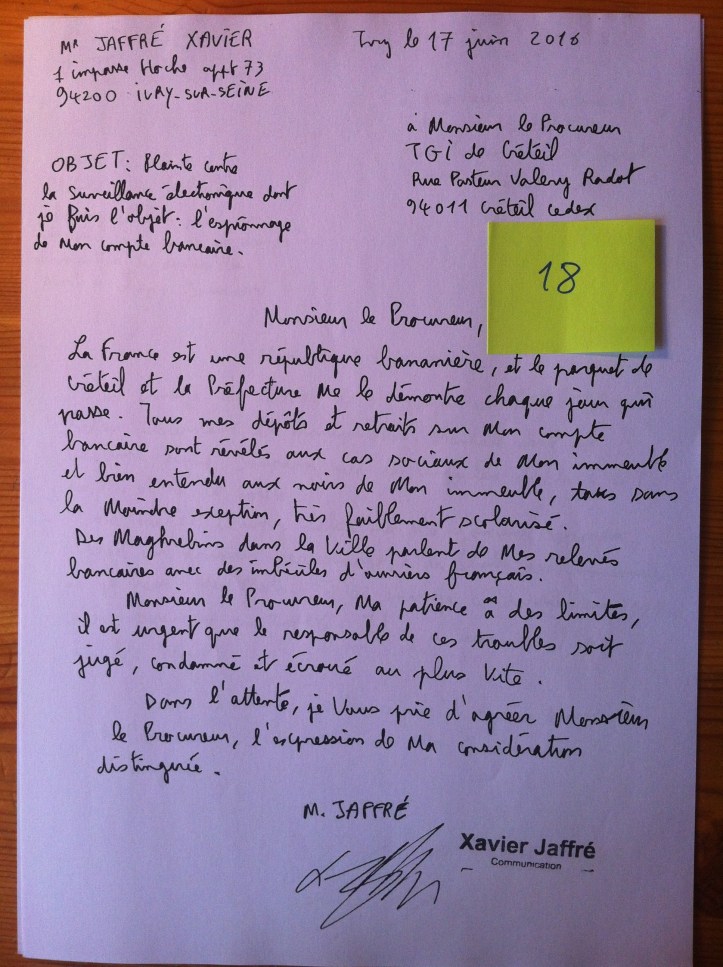 Mr JAFFRÉ XAVIER
1 impasse Hoche appt 73
94200 IVRY-SUR-SEINE
Ivry le 17 juin 2016
à Monsieur le Procureur
TGI de Créteil
Rue Pasteur Valery Radot
94011 Créteil cedex
OBJET: Plainte contre
la surveillance électronique dont
je fuis l'objet: l'espionnage
de mon compte bancaire.
18
Monsieur le Procureur,
La France est une république bananière, et le parquet de
Créteil et la Préfecture me le démontre chaque jour qui
passe. Tous mes dépôts et retraits sur mon compte
bancaire sont révélés aux cas sociaux de mon immeuble
et bien entendu aux noirs de mon immeuble, tous sans
la moindre exeption, très faiblement scolarisé.
Des Maghrebins dans la ville parlent de mes relevés
bancaires avec des imbéciles d'ouvriers français.
Monsieur le Procureur, ma patience a des limites,
il est urgent que le responsable de ces troubles soit
jugé, condamné et écroué au plus vite.
Dans l'attente, je vous prie d'agréer Monsieur
le Procureur, l'expression de ma considération
distinguée.
M. JAFFRÉ
Xavier Jaffré
Communication